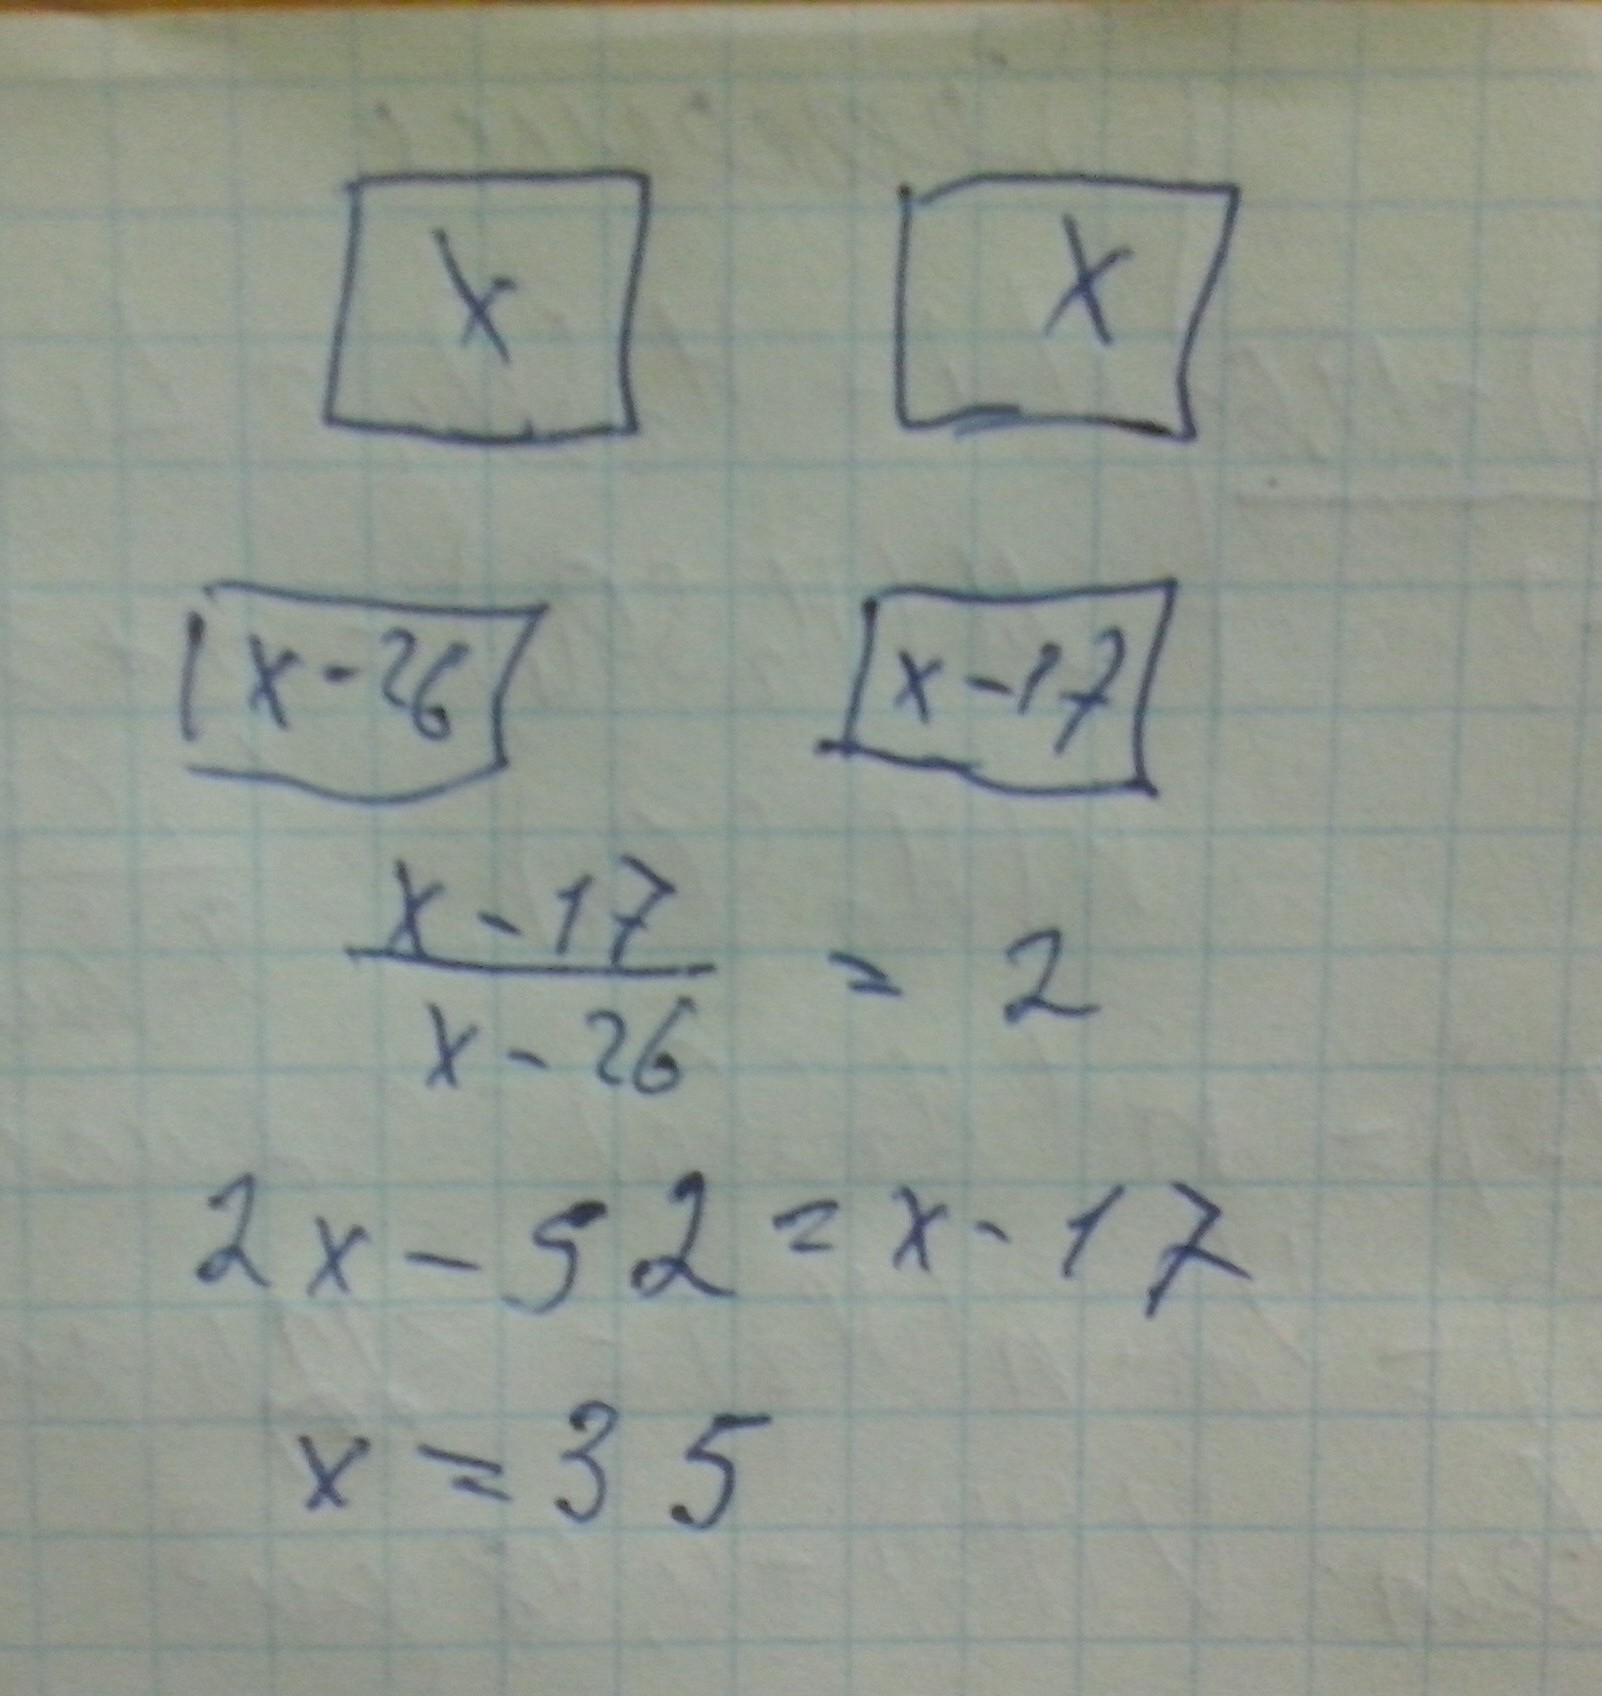 x x
x - 26 x - 17
x - 17
x - 26 = 2
2x - 52 = x - 17
x = 35